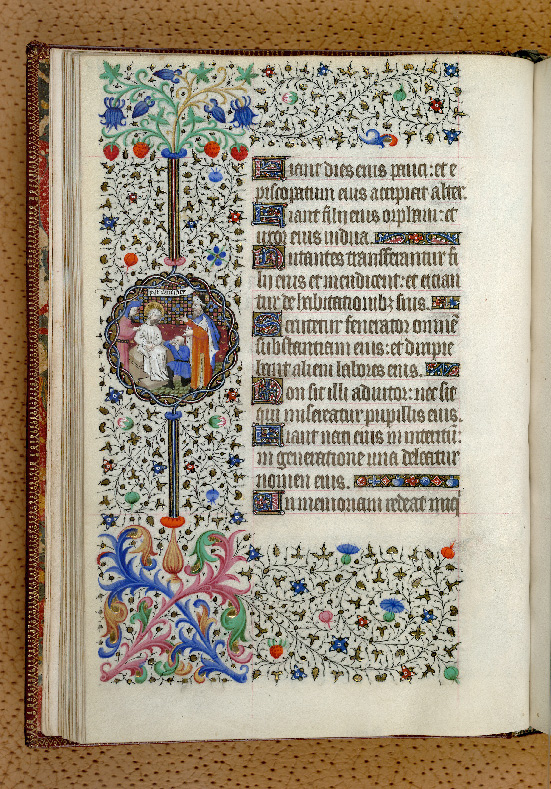 Fiant dies eius pauci: et e
piscopatum eius accipiat alter.
Fiant filii eius orphani: et
uxor eius uidua.
Nutantes transferantur fi
lii eius et mendicent: et eician
tur de habitationibz suis.
Scrutetur fenerator omnē
substantiam eius: et diripi
ant alieni labores eius.
Non sit illi adiutor: nec sit
qui misereatur pupillis eius.
Fiant nati eius in interitū:
in generatione una deleatur
nomen eius.
In memoriam redeat iniq